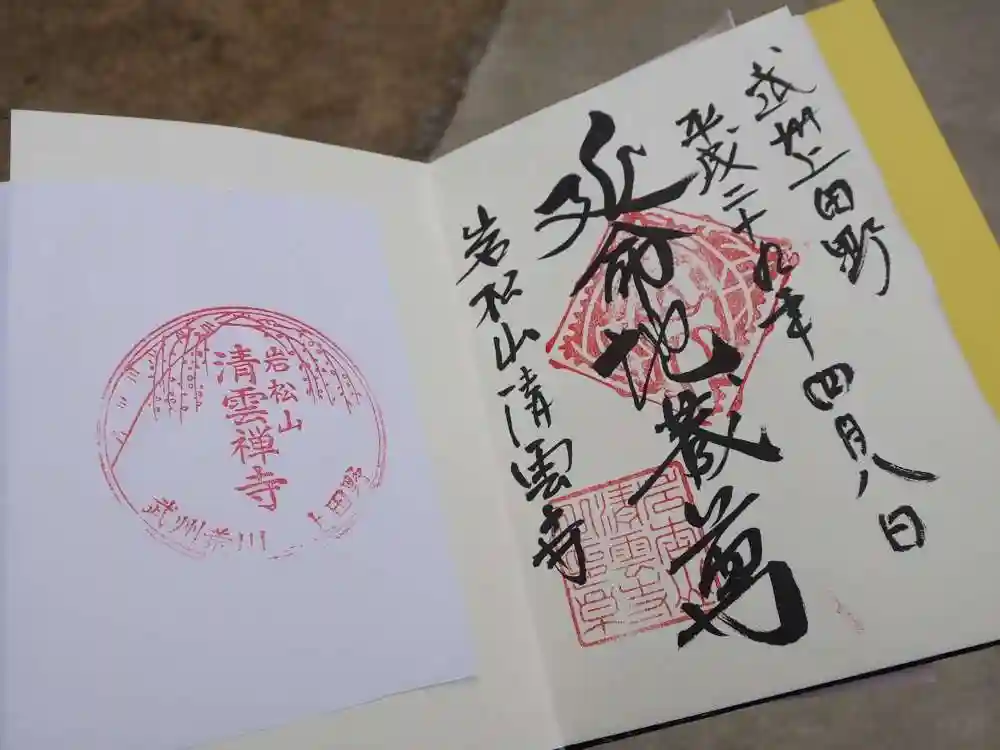 武州上田野
平成二十九年四月八日
延命地蔵尊
岩松山清雲寺
岩松山
清雲禅寺
武州荒川
上田野